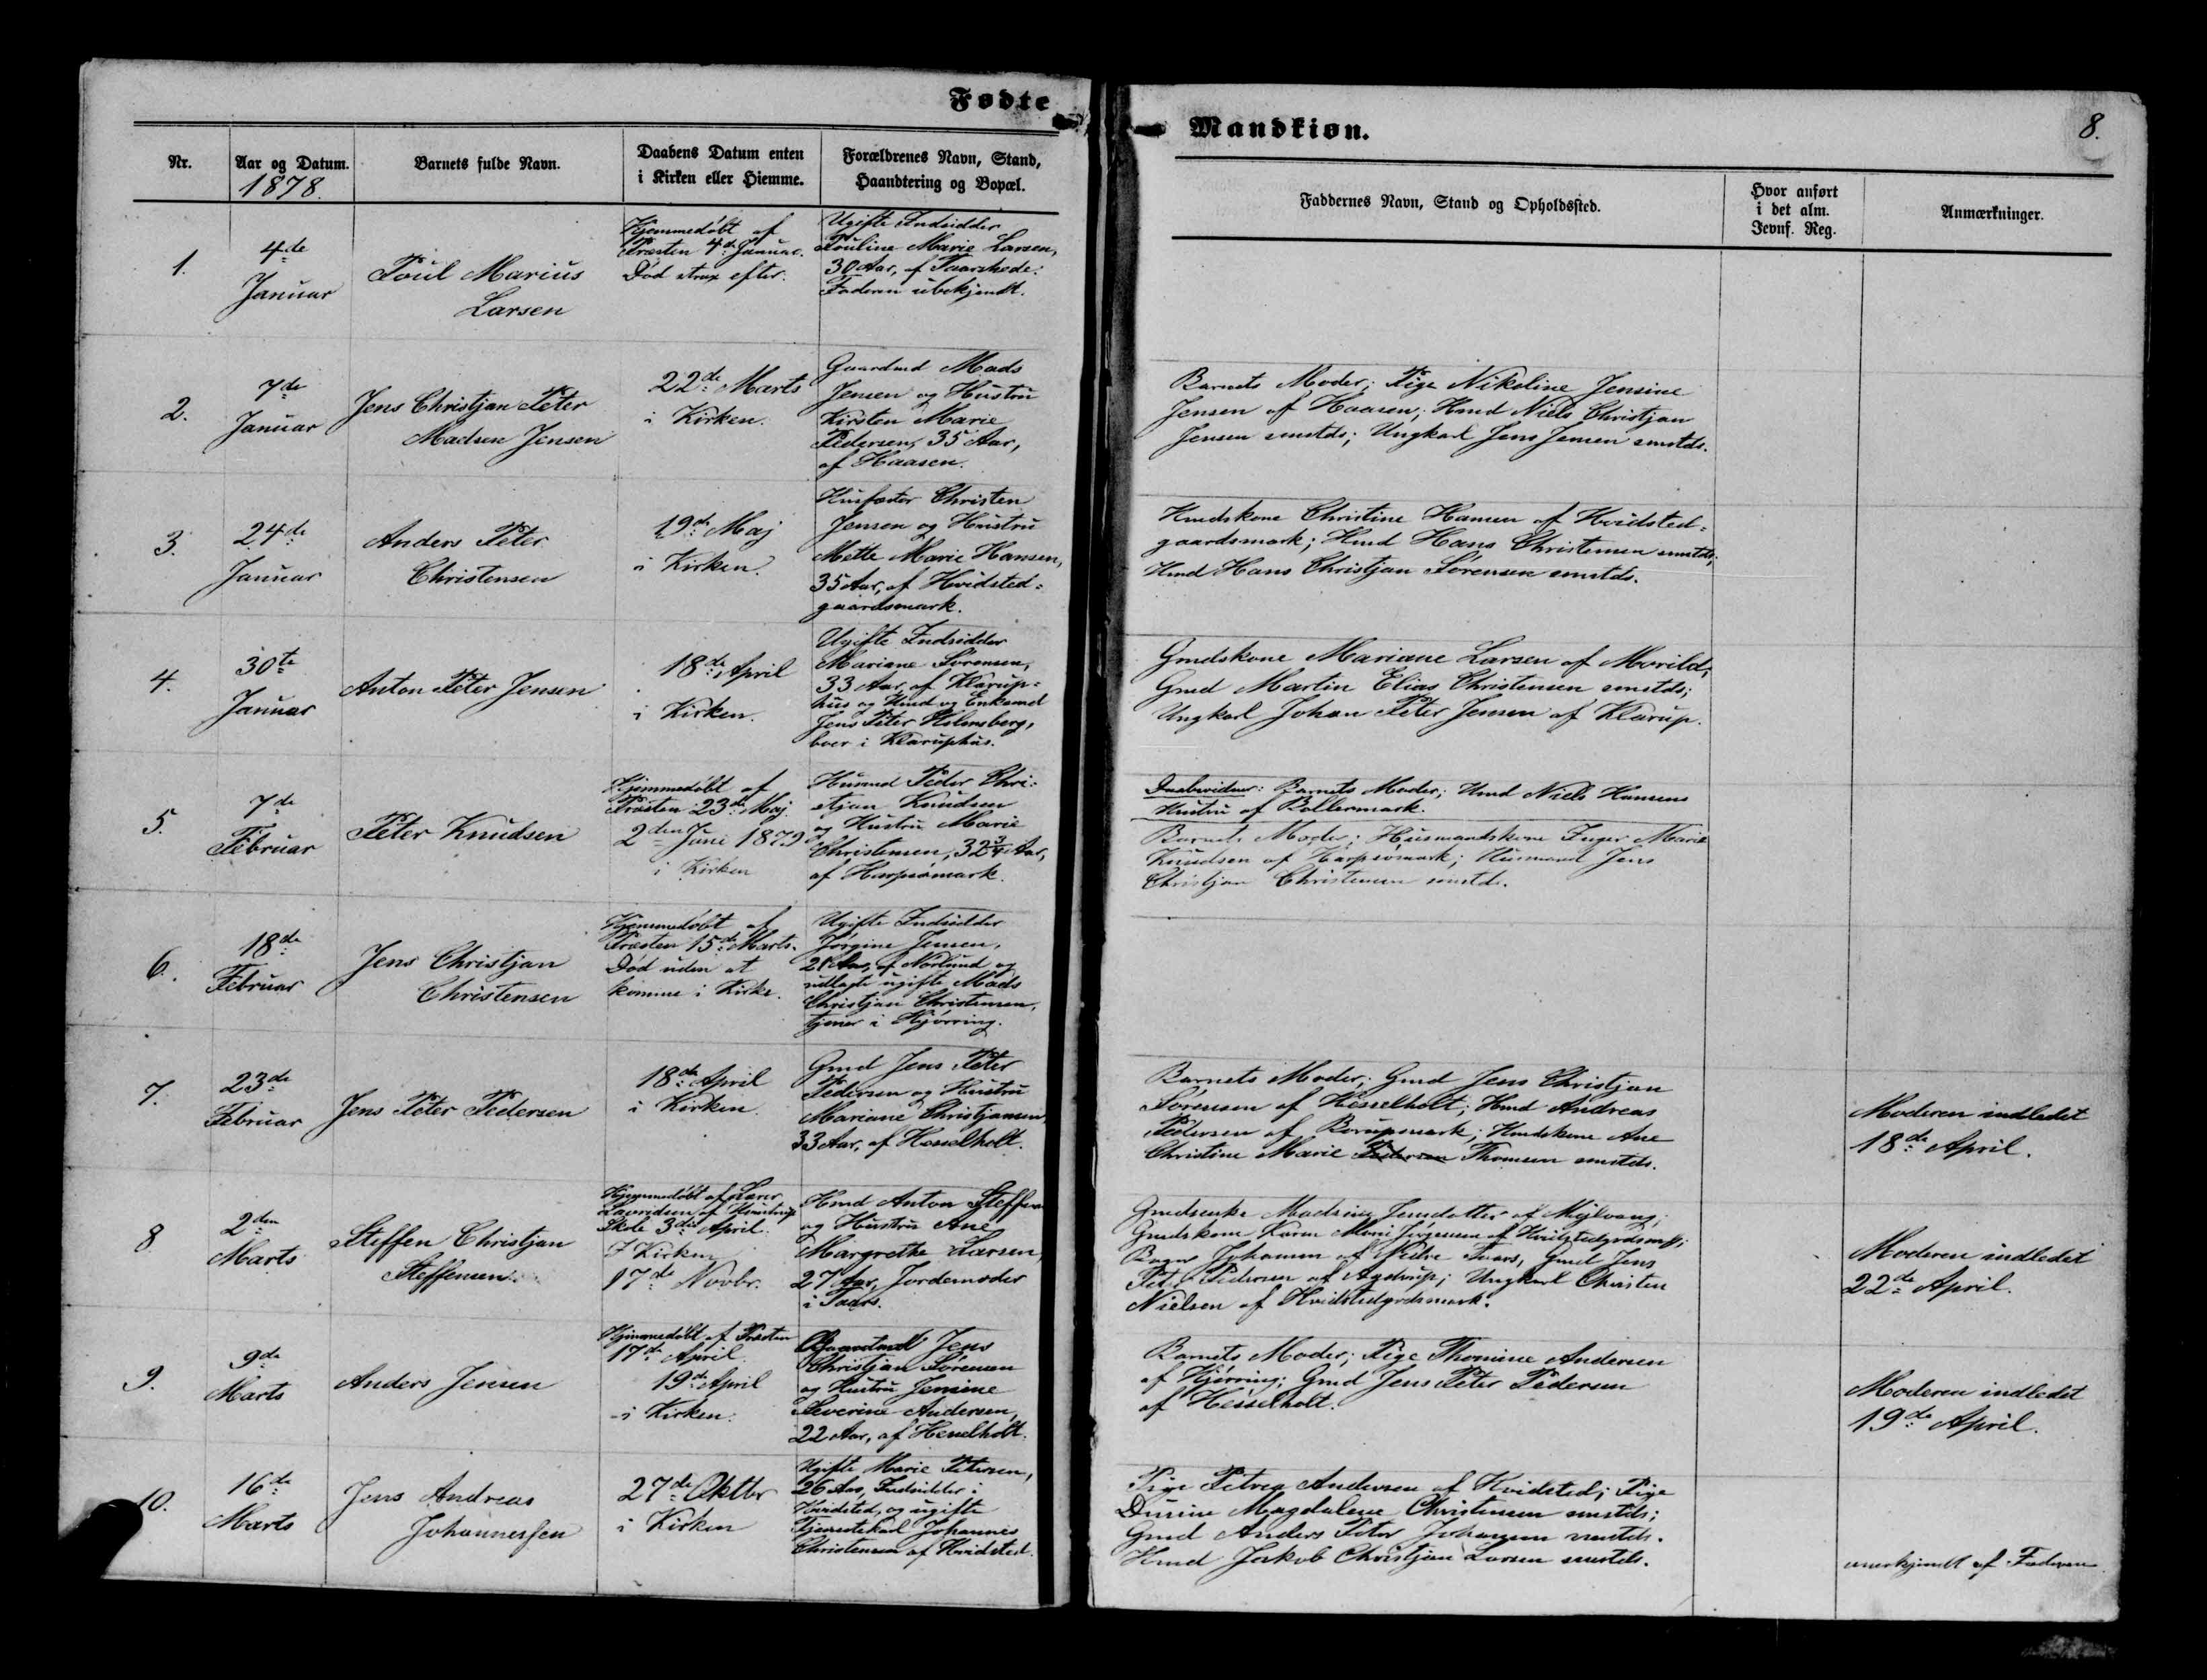 Fødte
Mandkiøn.
8.
Nr.
Aar og Datum.
1878.
Barnets fulde Navn.
Daabens Datum enten
i Kirken eller Hiemme.
Forældrenes Navn, Stand,
Haandtering og Bopæl.
Faddernes Navn, Stand og Opholdssted.
Hvor anført
i det alm.
Jevnf. Reg.
Anmærkninger.
1.
4de
Januar
Poul Marius
Larsen
Hjemmedøbt af
Præsten 4de Januar.
Død strax efter.
Ugifte Indsidder
Pouline Marie Larsen,
30 Aar, af Taarshede.
Faderen ubekjendt.
2.
7de
Januar
Jens Christjan Peter
Madsen Jensen
22de Marts
i Kirken.
Gaardmd Mads
Jensen og Hustru
Kirsten Marie
Pedersen, 35 Aar,
af Haasen.
Barnets Moder; Pige Nikoline Jensine
Jensen af Haasen; Hmd Niels Christjan
Jensen smstds; Ungkarl Jens Jensen smstds.
3.
24de
Januar
Anders Peter
Christensen
19de Maj
i Kirken.
Husfæster Christen
Jensen og Hustru
Mette Marie Hansen,
35 Aar, af Hvidsted-
gaardsmark.
Hmdskone Christine Hansen af Hvidsted-
gaardsmark; Hmd Hans Christensen smstds;
Hmd Hans Christjan Sørensen smstds.
4.
30te
Januar
Anton Peter Jensen
18de April
i Kirken.
Ugifte Indsidder
Mariane Sørensen,
33 Aar, af Klarup-
hus og Hmd og Enkemd
Jens Peter Holmsberg,
boer i Klaruphus.
Gmdskone Mariane Larsen af Morild;
Gmd Martin Elias Christensen smstds;
Ungkarl Johan Peter Jensen af Klarup.
5.
7de
Februar
Peter Knudsen
Hjemmedøbt af
Præsten 23de Maj.
2den Juni 1879.
i Kirken
Husmd Peder Chri-
stjan Knudsen
og Hustru Marie
Christensen, 32 3/4 Aar,
af Harpsømark.
Daabsvidner: Barnets Moder; Hmd Niels Hansens
Hustru af Bollermark.
Barnets Moder; Husmandskone Inger Marie
Knudsen af Harpsømark; Husmand Jens
Christjan Christensen smstds.
6.
18de
Februar
Jens Christjan
Christensen
Hjemmedøbt af
Præsten 15de Marts.
Død uden at
komme i Kirke.
Ugifte Indsidder
Jørgine Jensen,
21 Aar, af Nørlund og
udlagte ugifte Mads
Christjan Christensen,
tjener i Hjørring.
7.
23de
Februar
Jens Peter Pedersen
18de April
i Kirken.
Gmd Jens Peter
Pedersen og Hustru
Mariane Christjansen,
33 Aar, af Hesselholt.
Barnets Moder; Gmd Jens Christjan
Sørensen af Hesselholt; Hmd Andreas
Pedersen af Borupsmark; Hmdskone Ane
Christine Marie Pedersen Thomsen smstds.
Moderen indledet
18de April.
8
2den
Marts
Steffen Christjan
Steffensen
Hjemmedøbt af Lærer
Lavridsen af
Skole 3die April.
I Kirken
17de Novbr.
Hmd Anton Steffensen
og Hustru Ane
Margrethe Larsen,
27 Aar, Jordemoder
i Taars.
Gmdsenke Madsine Jensdatter af Mylvang;
Gmdskone Karen Marie Jørgensen af
Bager Johansen af Taars, Gmd Jens
Peter Pedersen af Agdrup; Ungkarl Christen
Nielsen af Hvidstedgrdsmark.
Moderen indledet
22de April.
9.
9de
Marts
Anders Jensen
Hjemmedøbt af Præsten
17de April
19de April
i Kirken.
Gaardmd Jens
Christjan Sørensen
og Hustru Jensine
Severine Andersen,
22 Aar, af Hesselholt.
Barnets Moder; Pige Thomine Andersen
af Hjørring; Gmd Jens Peter Pedersen
af Hesselholt.
Moderen indledet
19de April.
10.
16de
Marts
Jens Andreas
Johannessen
27de Oktbr
i Kirken
Ugifte Marie Petersen,
26 Aar, Indsidder i
Hvidsted, og ugifte
Tjenestekarl Johannes
Christensen af Hvidsted.
Pige Petrea Andersen af Hvidsted; Pige
Magdalene Christensen smstds;
Gmd Anders Peter Johansen smstds.
Hmd Jakob Christjan Larsen smstds.
anerkjendt af Faderen